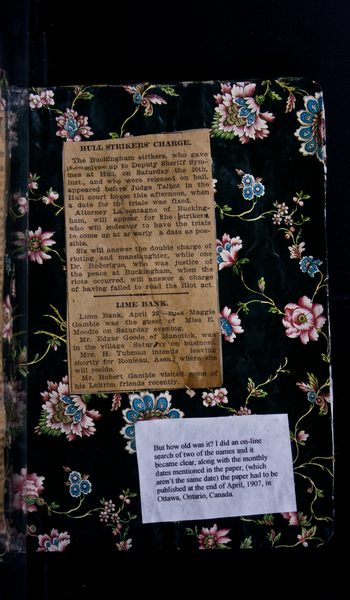 HULL STRIKERS' CHARGE.
The Buckingham strikers, who gave
themselves up to Deputy Sheriff Sym-
mes at Hull, on Saturday the 20th,
inst., and who were released on bail,
appeared before Judge Talbot in the
Hull court house this afternoon, when
a date for the trials was fixed.
Attorney Lamontagne of Bucking-
ham, will appear for the strikers
who will endeavor to have the trials
to come up at as early a date as pos-
sible.
Six will answer the double charge of
rioting and manslaughter, while one
Dr. Rodergue, who was justice of
the peace at Buckingham, when the
riots occurred, will answer a charge
of having failed to read the Riot act.
LIME BANK.
Lime Bank, April 26.—Miss Maggie
Gamble was the guest of Miss E.
Moodie on Saturday evening.
Mr. Edgar Goode of Manotick, was
in the village Saturday on business.
Mrs. H. Tubman intends leaving
shortly for Rouleau, Assa., where she
will reside.
Mr. Robert Gamble visited some of
his Leitrim friends recently.
But how old was it? I did an on-line
search of two of the names and it
became clear, along with the monthly
dates mentioned in the paper, (which
aren't the same date) the paper had to be
published at the end of April, 1907, in
Ottawa, Ontario, Canada.